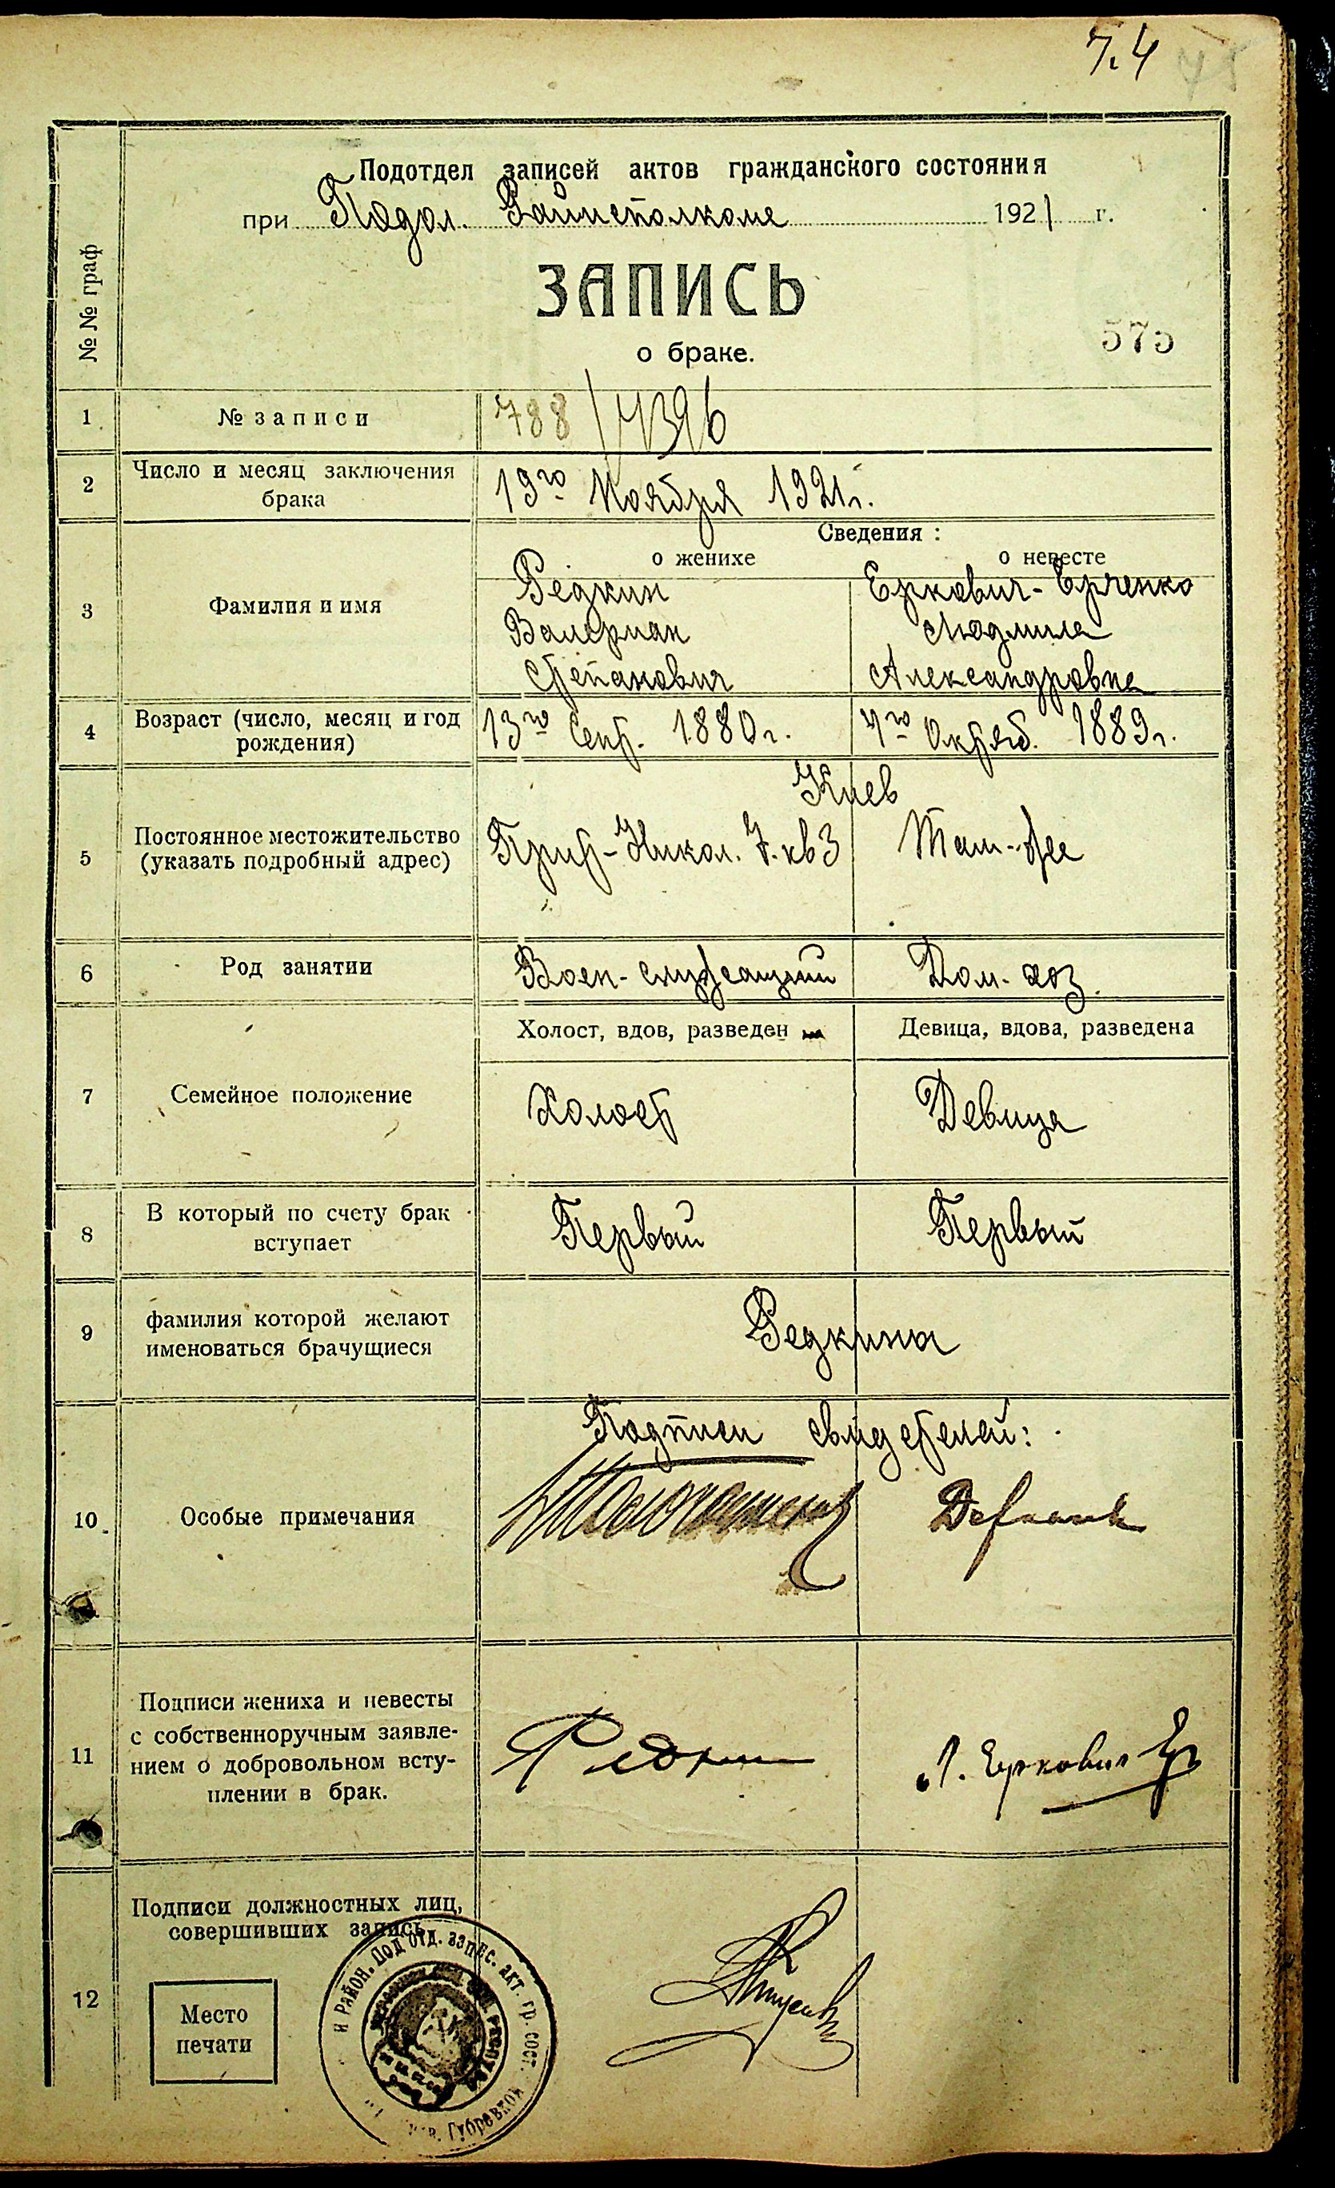 7.4
Подотдел записей актов гражданского состояния
при Подол. Райисполкоме 1921 г.
ЗАПИСЬ
о браке.
575
№№ граф
1 № записи 788/4396
2 Число и месяц заключения брака 19го Ноября 1921г.
Сведения :
о женихе о невесте
3 Фамилия и имя
Редкин Еркович-Ерченко
Валериан Людмила
Степанович Александровна
4 Возраст (число, месяц и год рождения) 13го Сент. 1880г. 4го Октяб. 1889г.
Киев
5 Постоянное местожительство
(указать подробный адрес) Прит-Никол. 7. кв 3 Там-же
6 Род занятии Воен-служащий Дом-хоз.
Холост, вдов, разведен Девица, вдова, разведена
7 Семейное положение Холост Девица
8 В который по счету брак
вступает Первый Первый
9 фамилия которой желают
именоваться брачущиеся Редкина
Подписи свидетелей:
10 Особые примечания
11 Подписи жениха и невесты
с собственноручным заявле-
нием о добровольном всту-
плении в брак.
Редкин Л. Еркович Ер
12 Подписи должностных лиц,
совершивших запись
Место
печати
и РАЙОН. ПОД ОТД. ЗАПИС. АКТ. ГР. СОСТ. Губревком